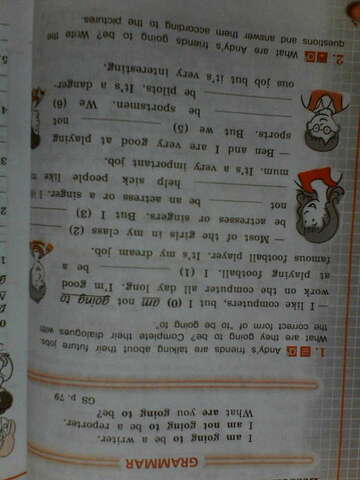 GRAMMAR
I am going to be a writer.
I am not going to be a reporter.
What are you going to be?
GS p. 79
1. Andy's friends are talking about their future jobs.
What are they going to be? Complete their dialogues with
the correct form of "to be going to".
— I like computers, but I (0) am not going to
work on the computer all day long. I'm good
at playing football. I (1) be a
famous football player. It's my dream job.
— Most of the girls in my class (2)
be actresses or singers. But I (3)
not be an actress or a singer. I
help sick people like
mum. It's a very important job.
— Ben and I are very good at playing
sports. But we (5) not
be sportsmen. We (6)
be pilots. It's a danger-
ous job but it's very interesting.
2. What are Andy's friends going to be? Write the
questions and answer them according to the pictures.